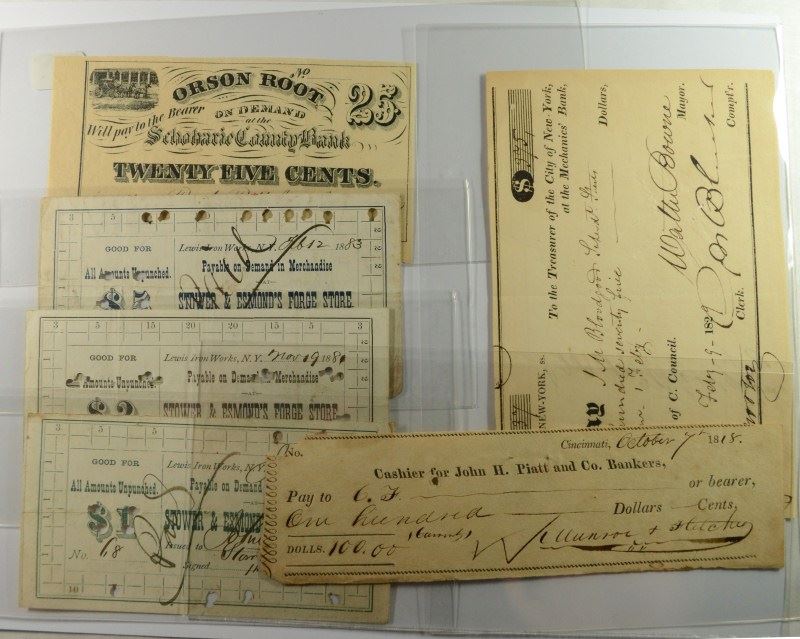 No
ORSON ROOT
25
Will pay to the Bearer ON DEMAND
at the
Schoharie County Bank
TWENTY FIVE CENTS.
3 5 2
GOOD FOR Lewis Iron Works, N.Y. 12 1883
All Amounts Unpunched. Payable on Demand in Merchandise
STOWER & ESMOND'S FORGE STORE.
3 5 15 20 20 15 5 3
GOOD FOR Lewis Iron Works, N.Y. Nov 19 188
Amounts Unpunched. Payable on Demand in Merchandise
$2 STOWER & ESMOND'S FORGE STORE
3 5 15
GOOD FOR Lewis Iron Works, N.Y.
All Amounts Unpunched. Payable on Demand
$1 STOWER & ESMOND
No. 68 Issued to
Signed
10
$375
To the Treasurer of the City of New-York,
at the Mechanics Bank,
Bloodgood Dollars,
hundred seventy five
NEW-YORK, ss.
Walter Bowne Mayor.
of C. Council. Feby - 9 - 1829
Clerk. Compt'r.
No. Cincinnati, October 7th 1818.
Cashier for John H. Piatt and Co. Bankers,
Pay to C. F. or bearer,
One hundred Dollars Cents,
DOLLS. 100.00 W. Munroe &